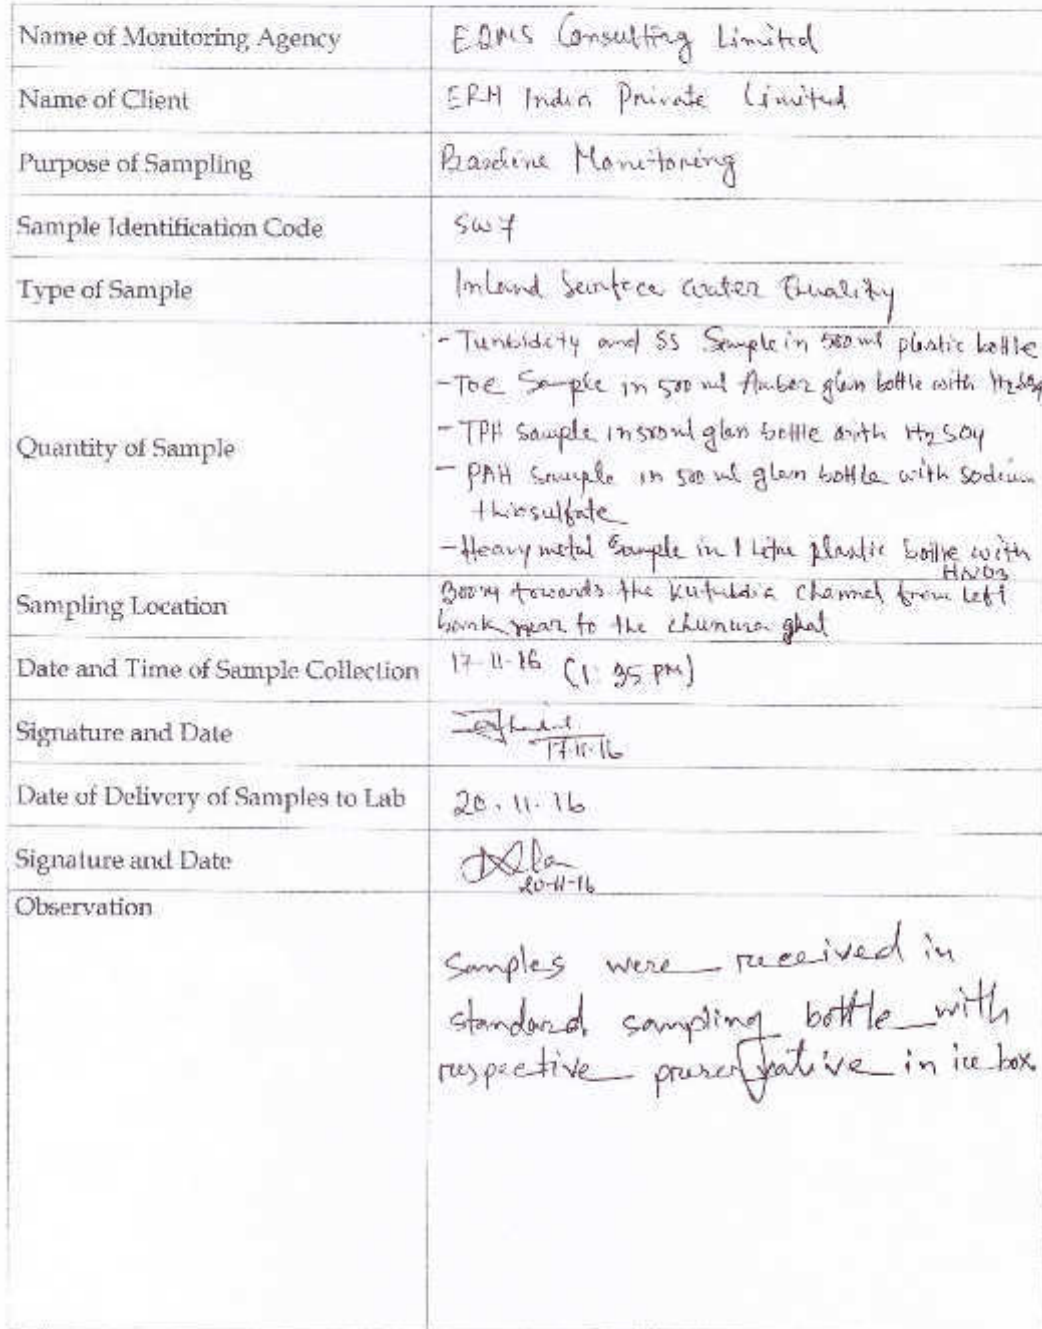 Name of Monitoring Agency EQMS Consulting Limited
Name of Client ERM India Private Limited
Purpose of Sampling Baseline Monitoring
Sample Identification Code SW7
Type of Sample Inland Surface water Quality
Quantity of Sample
- Turbidity and SS Sample in 500 ml plastic bottle
- TOC Sample in 500 ml Amber glass bottle with H2SO4
- TPH sample in 500 ml glass bottle with H2SO4
- PAH Sample in 500 ml glass bottle with sodium
thiosulfate
- Heavy metal Sample in 1 Litre plastic bottle with
HNO3
Sampling Location 300m towards the Kutubdia Channel from left
bank near to the chunura ghat
Date and Time of Sample Collection 17-11-16 (1:35 PM)
Signature and Date
17-11-16
Date of Delivery of Samples to Lab 20.11.16
Signature and Date
20-11-16
Observation
Samples were received in
standard sampling bottle with
respective preservative in ice box